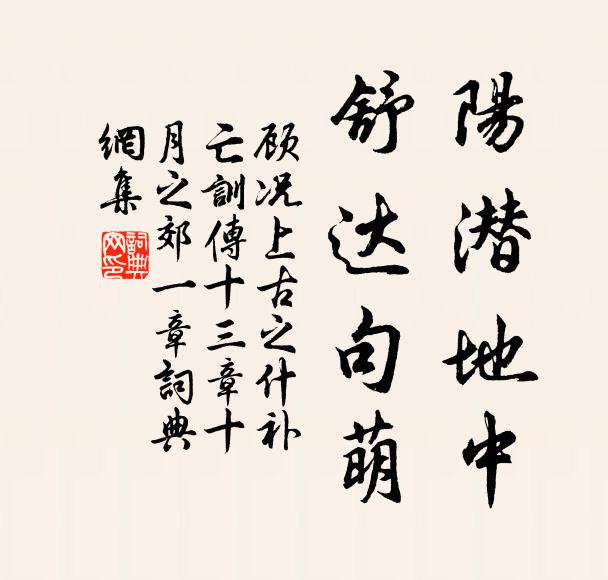 陽潜地中
舒达句萌
顾况上古之什补
亡訓傳十三章十
月之郊一章詞典
網集
詞典
网印